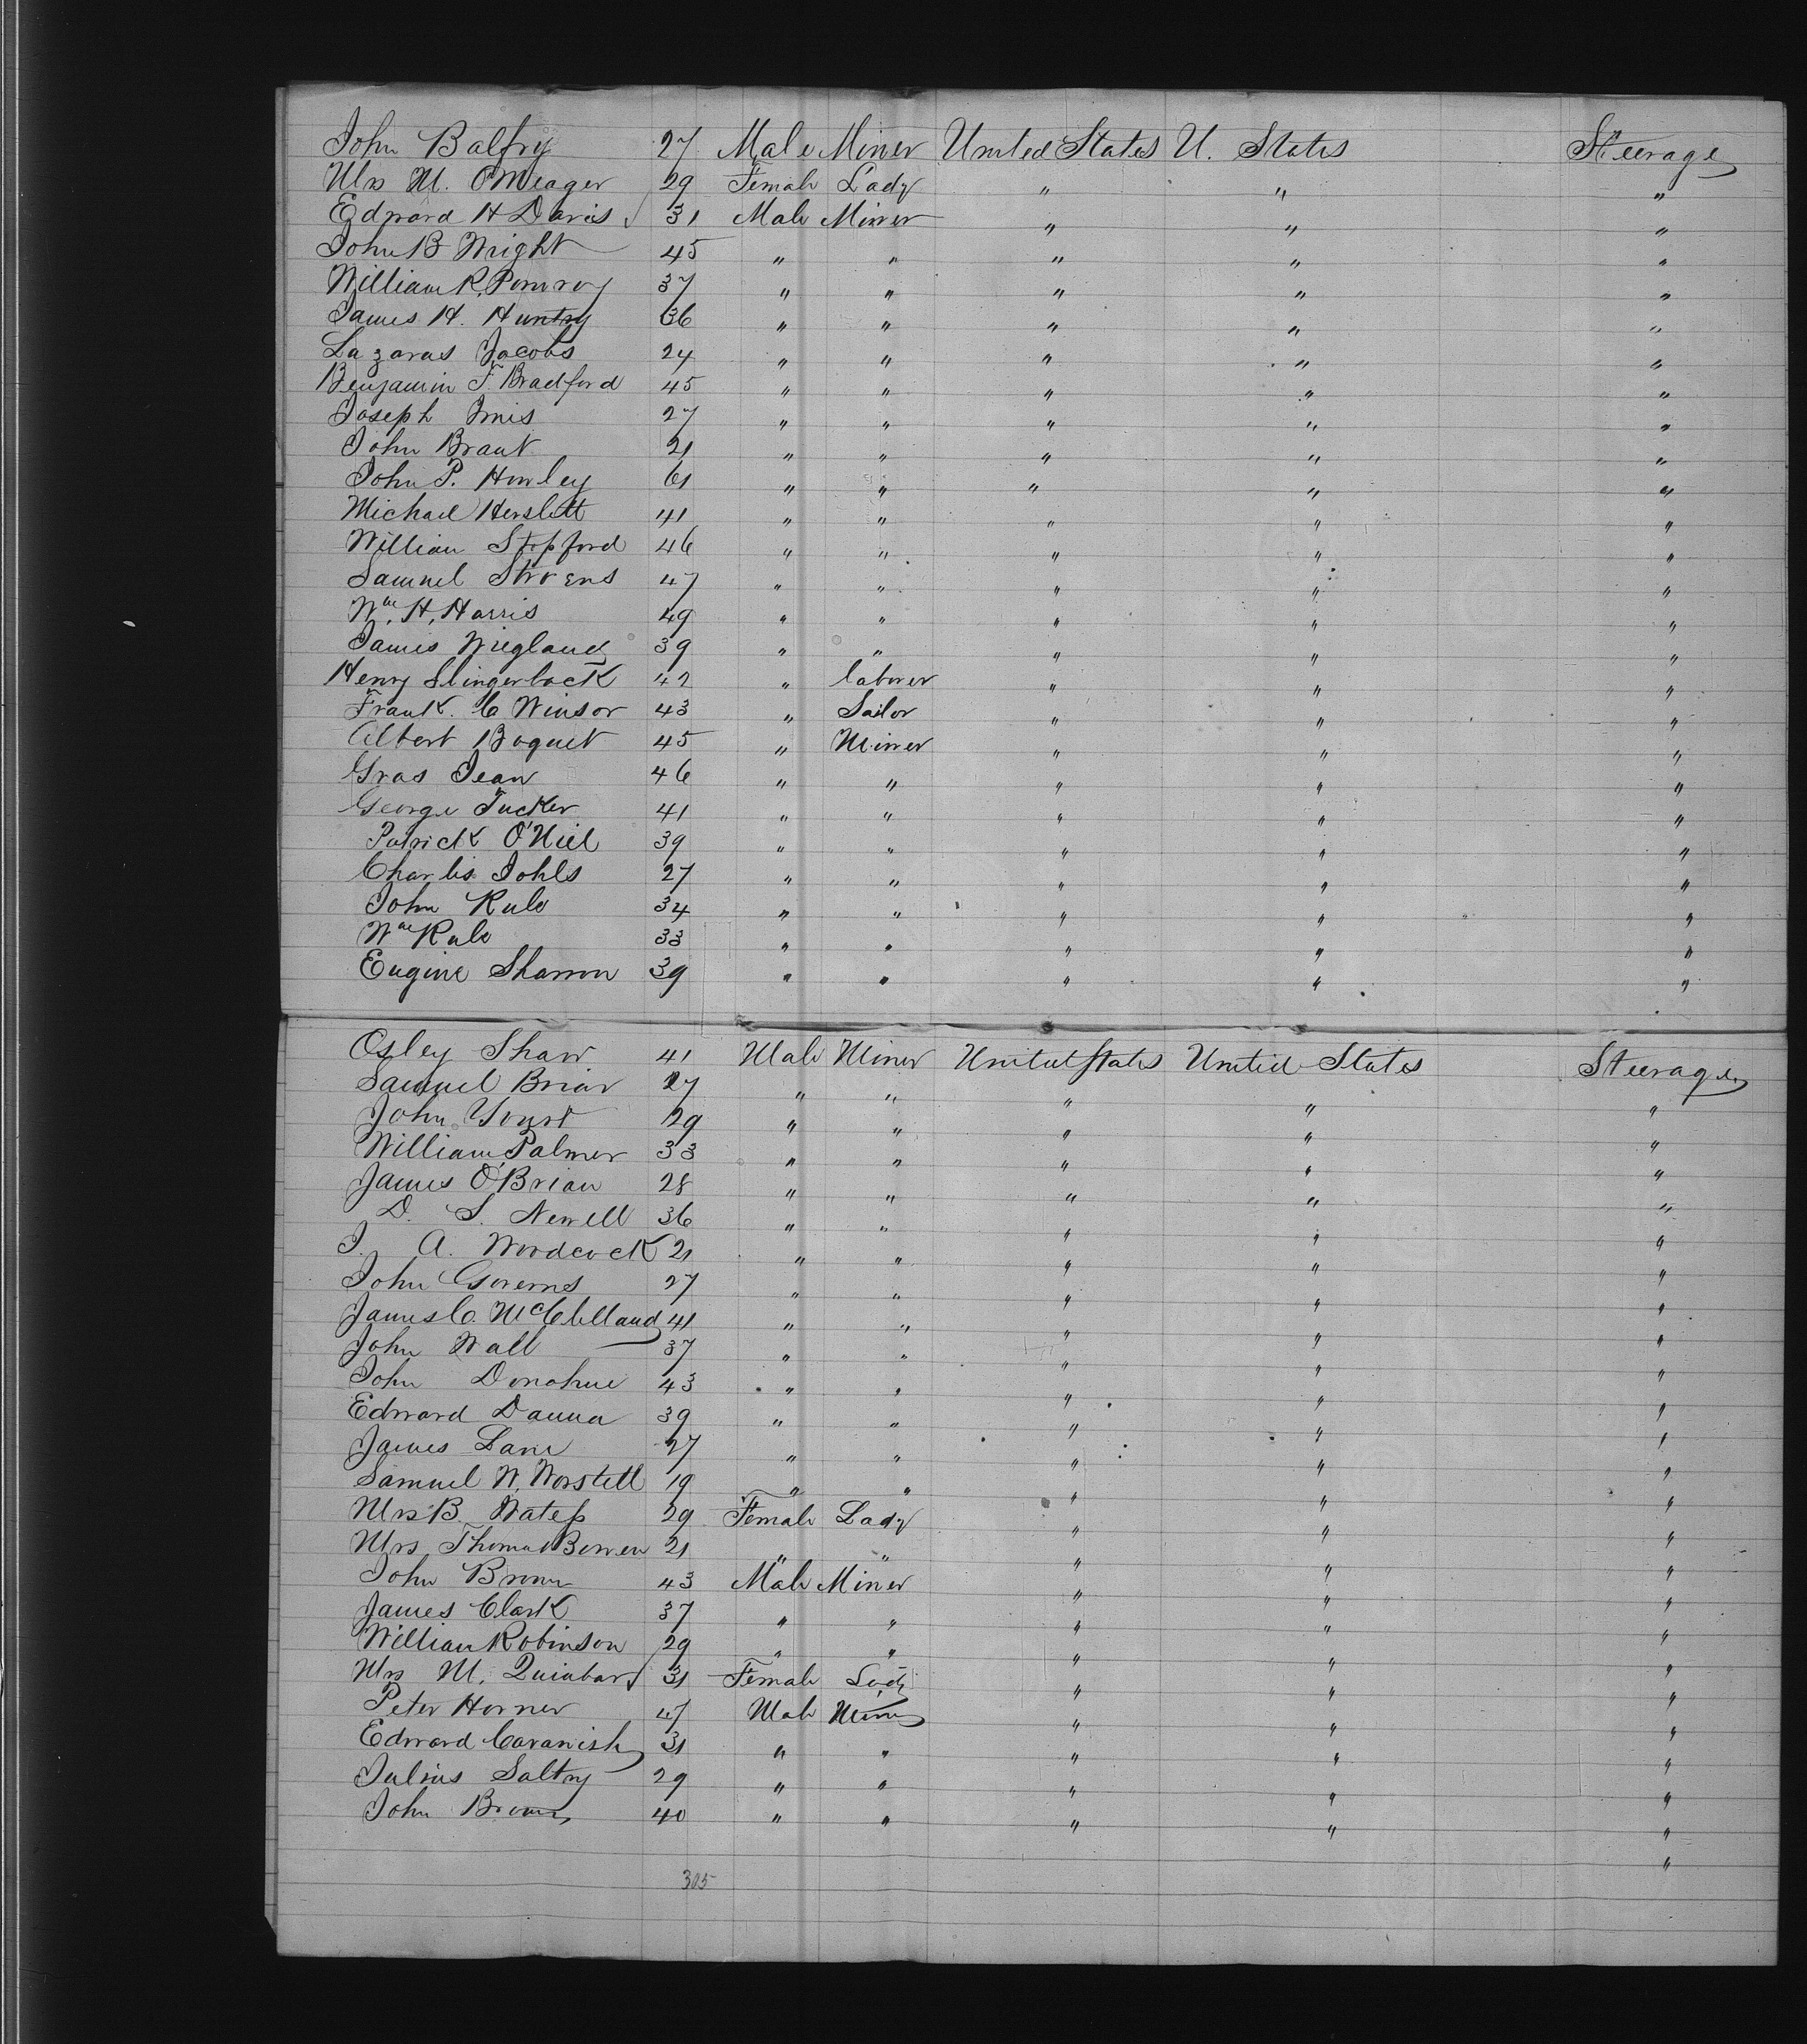 John Balfry 27 Male Miner United States U. States Steerage
Mrs M. O'Meager 29 Female Lady " " "
Edward H Davis 31 Male Miner " " "
John B Wright 45 " " " " "
William R. Pomroy 37 " " " " "
James H. Huntry 36 " " " " "
Lazaras Jacobs 24 " " " " "
Benjamin F. Bradford 45 " " " " "
Joseph 27 " " " " "
John Brant 21 " " " " "
John P. Howley 61 " " " " "
Michael Herslett 41 " " " " "
William Stopford 46 " " " " "
Samuel Stevens 47 " " " " "
Wm. H. Harris 49 " " " " "
James Wiegland 39 " " " " "
Henry Slingerback 42 " laborer " " "
Frank. C Winsor 43 " Sailor " " "
Albert Boquet 45 " Miner " " "
Gras Jean 46 " " " " "
George Tucker 41 " " " " "
Patrick O'Niel 39 " " " " "
Charles Johls 27 " " " " "
John Rule 34 " " " " "
Wm Rule 33 " " " " "
Eugine Sharron 39 " " " " "
Osley Shaw 41 Male Miner United States United States Steerage
Samuel Briar 27 " " " " "
John Yourt 29 " " " " "
William Palmer 33 " " " " "
James O'Brian 28 " " " " "
D. S. Newell 36 " " " " "
J. A. Woodcock 21 " " " " "
John Governs 27 " " " " "
James C. McClelland 41 " " " " "
John Wall 37 " " " " "
John Donohue 43 " " " " "
Edward Danna 39 " " " " "
James Lane 27 " " " " "
Samuel W. Worstell 19 " " " " "
Mrs B. 29 Female Lady " " "
Mrs Thomas Bowen 21 " " " " "
John Brown 43 Male Miner " " "
James Clark 37 " " " " "
William Robinson 29 " " " " "
Mrs M. Quinbard 31 Female Lady " " "
Peter Horner 47 Male Miner " " "
Edward Cavanish 31 " " " " "
Julius Saltry 29 " " " " "
John Brown 40 " " " " "
"
305